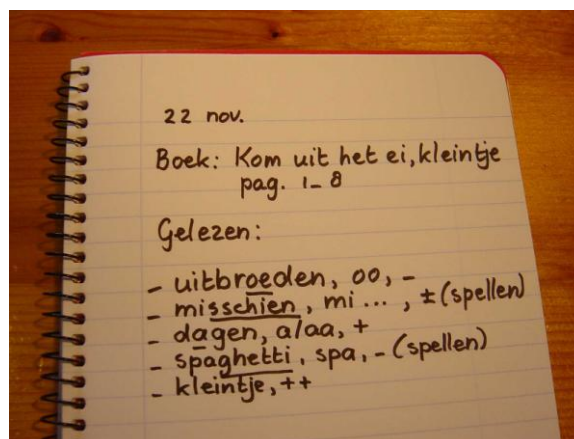 22 nov.
Boek: Kom uit het ei, kleintje
pag. 1_8
Gelezen:
- uitbroeden, oo, -
- misschien, mi..., ± (spellen)
- dagen, a/aa, +
- spaghetti, spa, - (spellen)
- kleintje, ++